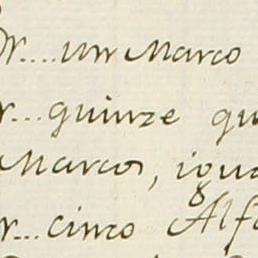 r....um Marco
r...quinze qu
Marcos, igua
r...cinco Alfa